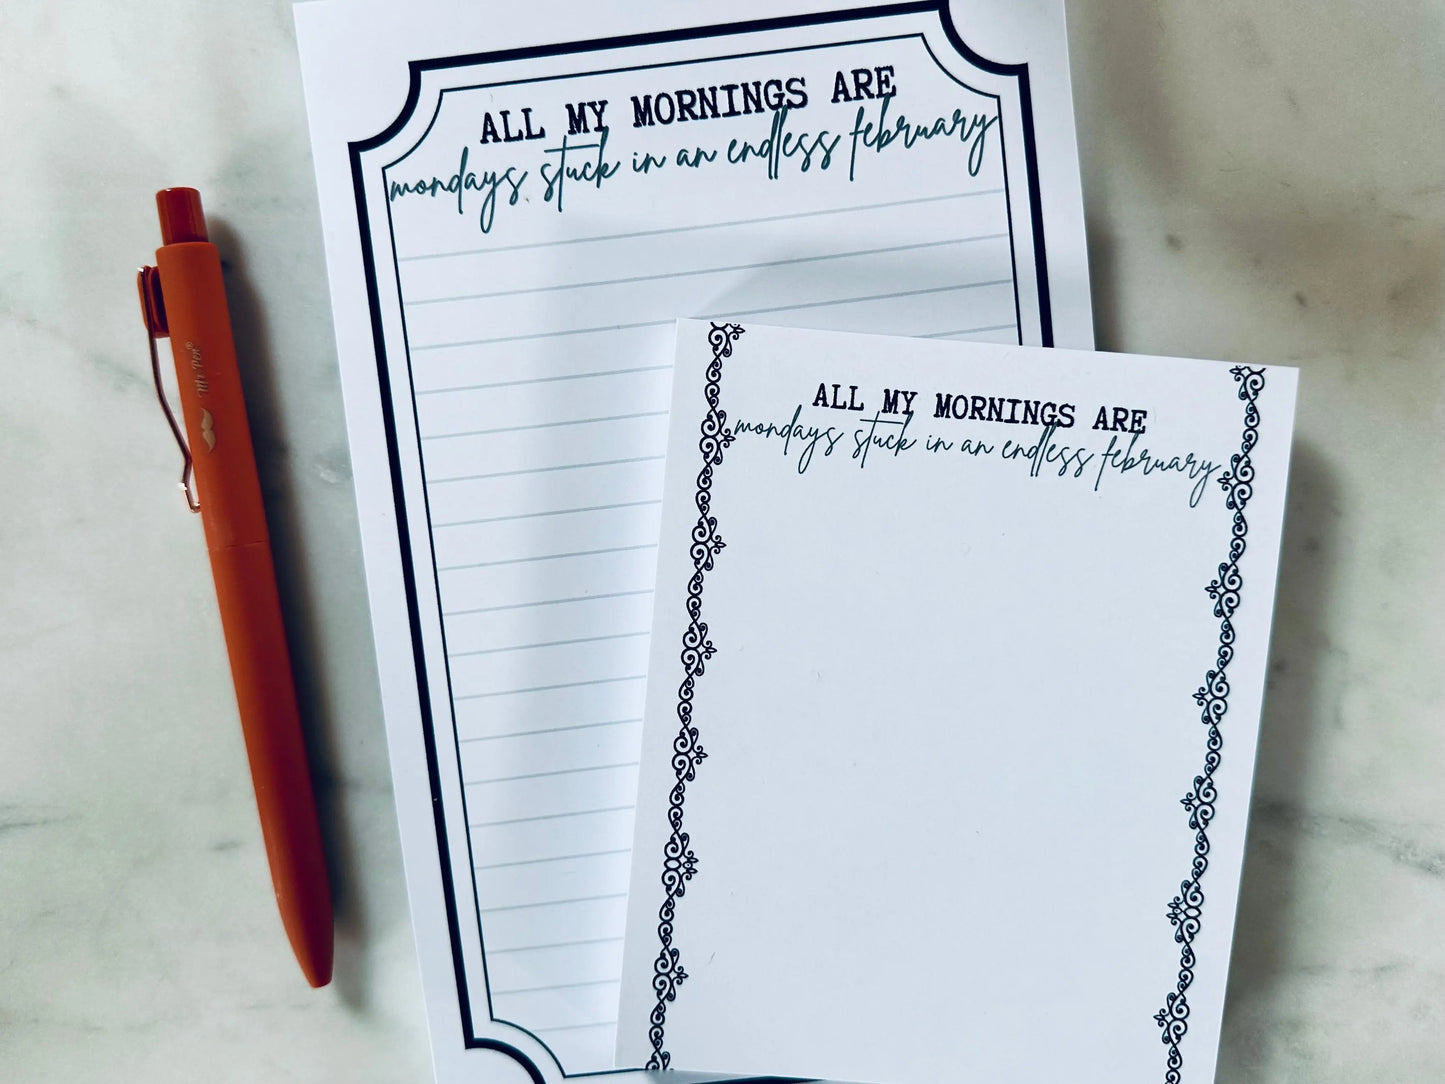 ALL MY MORNINGS ARE
mondays stuck in an endless february
ALL MY MORNINGS ARE
mondays stuck in an endless february
Mr Pen®